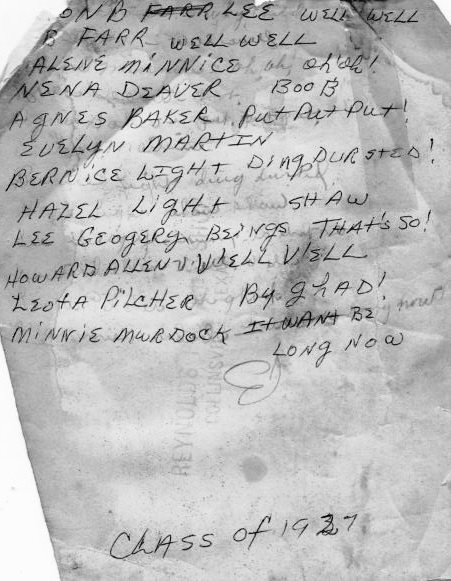 ON B FARR LEE WELL WELL
B FARR WELL WELL
ALENE MINNICE oh oh!
NENA DEAVER BOOB
AGNES BAKER PUT PUT PUT!
EVELYN MARTIN
BERNICE LIGHT DING DURSTED!
HAZEL LIGHT SHAW
LEE GEOGERY BEINGS THAT'S SO!
HOWARD ALLEN WELL WELL
LEOTA PILCHER By GHAD!
MINNIE MURDOCK IT WANT BE
LONG NOW
REYNOLDS
CLASS of 1927